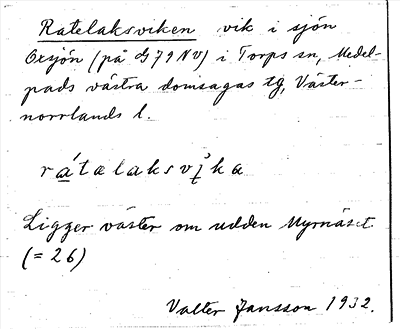 Ratelaksviken vik i sjön
Oxsjön (på G79NV) i Torps sn, Medel-
pads västra domsagas tg, Väster-
norrlands l.
rátelaksvika
Ligger väster om udden Myrnäset.
(= 26)
Valter Jansson 1932.